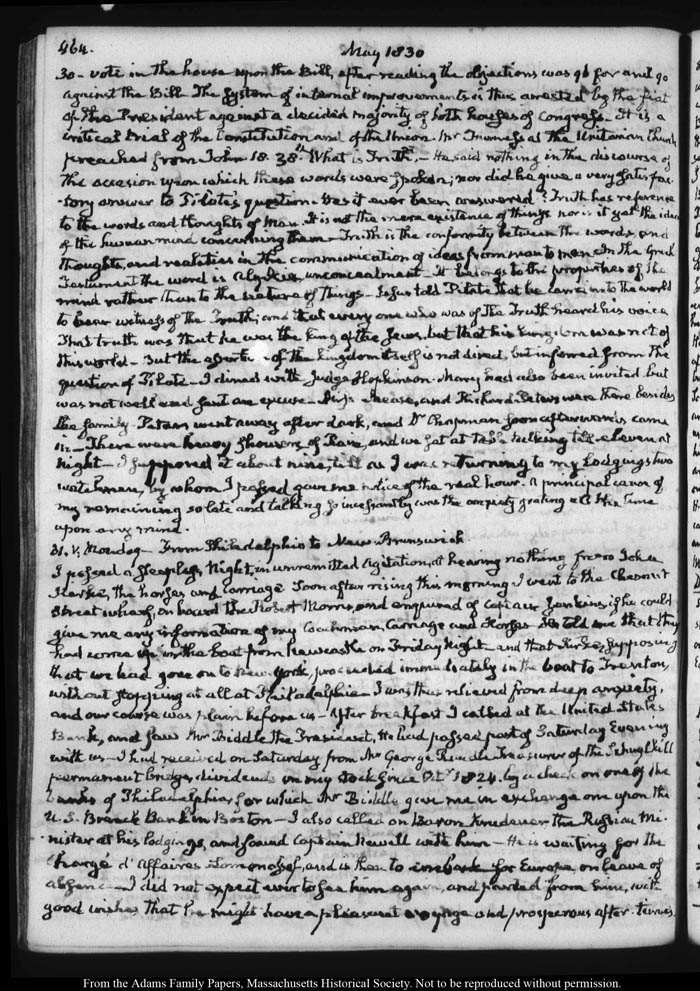 464.
May 1830
30 - vote in the house upon the Bill, after reading the objections was 96 for and 90
against the Bill. The System of internal improvements is thus arrested by the fiat
of the President against a decided majority of both houses of Congress. It is a
critical trial of the Constitution and of the Union. Mr Furness at the Unitarian Church
preached from John 18. 38. What is Truth. - He said nothing in the discourse of
the occasion upon which these words were spoken; nor did he give a very satisfac-
-tory answer to Pilate's question. Has it ever been answered? Truth has reference
to the words and thoughts of Man. It is not the mere existence of things nor is it yet the idea
of the human mind concerning them - Truth is the conformity between the words, and
thoughts, and realities in the communication of ideas from man to man. In the Greek
Testament the word is unconcealment - It belongs to the properties of the
mind rather than to the nature of things - Jesus told Pilate that he came into the world
to bear witness of the Truth; and that every one who was of the Truth heard his voice
That truth was that he was the King of the Jews, but that his kingdom was not of
this world - But the of the kingdom itself is not direct, but inferred from the
question of Pilate - I dined with Judge Hopkinson. Mary had also been invited but
was not well and sent an excuse. and Richard Peters were there besides
the family. Peters went away after dark, and Dr Chapman soon afterwards came
in - There were heavy showers of Rain, and we sat at Table talking till eleven at
Night - I supposed it about nine, till as I was returning to my Lodgings two
watchmen, by whom I passed gave me notice of the real hour. A principal cause of
my remaining so late and talking so incessantly was the anxiety grating all the time
upon my mind.
31. V. Monday - From Philadelphia to New-Brunswick.
I passed a sleepless Night, in unremitted agitation, at hearing nothing from John
Kirke, the horses and carriage. Soon after rising this morning I went to the Chesnut
Street wharf, on board the Robert Morris, and enquired of Captain Jenkins if he could
give me any information of my Coachman, Carriage and Horses. He told me that they
had come up in the boat from Newcastle on Friday Night - and that Kirke, supposing
that we had gone on to New York, proceeded immediately in the boat to Trenton,
without stopping at all at Philadelphia - I was thus relieved from deep anxiety,
and our course was plain before us - After breakfast I called at the United States
Bank, and saw Mr Biddle the President. He had passed part of Saturday Evening
with us - I had received on Saturday from Mr George Treasurer of the Schuylkill
permanent bridge, dividends on my stock since Octr 1824. by a check on one of the
banks of Philadelphia, for which Mr Biddle gave me in exchange one upon the
U.S. Branch Bank in Boston - I also called on Baron Krudener the Russian Mi-
-nister at his lodgings, and found Captain Newell with him - He is waiting for the
Chargé d'Affaires and is then to embark for Europe on leave of
absence - I did not expect ever to see him again, and parted from him, with
good wishes that he might have a pleasant voyage and prosperous after-times.
From the Adams Family Papers, Massachusetts Historical Society. Not to be reproduced without permission.